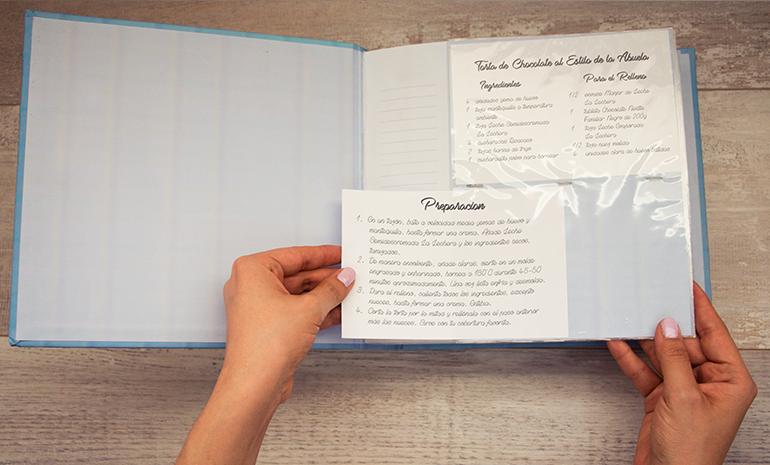 Torta de Chocolate al Estilo de la Abuela
Ingredientes
4 unidades yema de huevo
1 taza mantequilla a temperatura
ambiente
1 taza Leche Semidescremada
La Lechera
4 cucharadas
2 tazas harina de trigo
1 cucharadita polvo para hornear
Para el Relleno
1/2 Manjar de Leche
La Lechera
1 tableta Chocolate Nestlé
Familiar Negro de 200g
1 taza Leche Evaporada
La Lechera
1/2 taza nuez molida
4 unidades clara de huevo batidas
Preparacion
1. En un tazón, bate a velocidad media yemas de huevo y
mantequilla, hasta formar una crema. Añade Leche
Semidescremada La Lechera y los ingredientes secos,
tamizados.
2. De manera envolvente, añade claras, vierte en un molde
engrasado y enharinado, hornea a 180°C durante 45-50
minutos aproximadamente. Una vez lista enfría y desmolda.
3. Para el relleno, calienta todos los ingredientes, excepto
nueces, hasta formar una crema. Entibia.
4. Corta la torta por la mitad y rellénala con el paso anterior
más las nueces. Sirve con tu cobertura favorita.